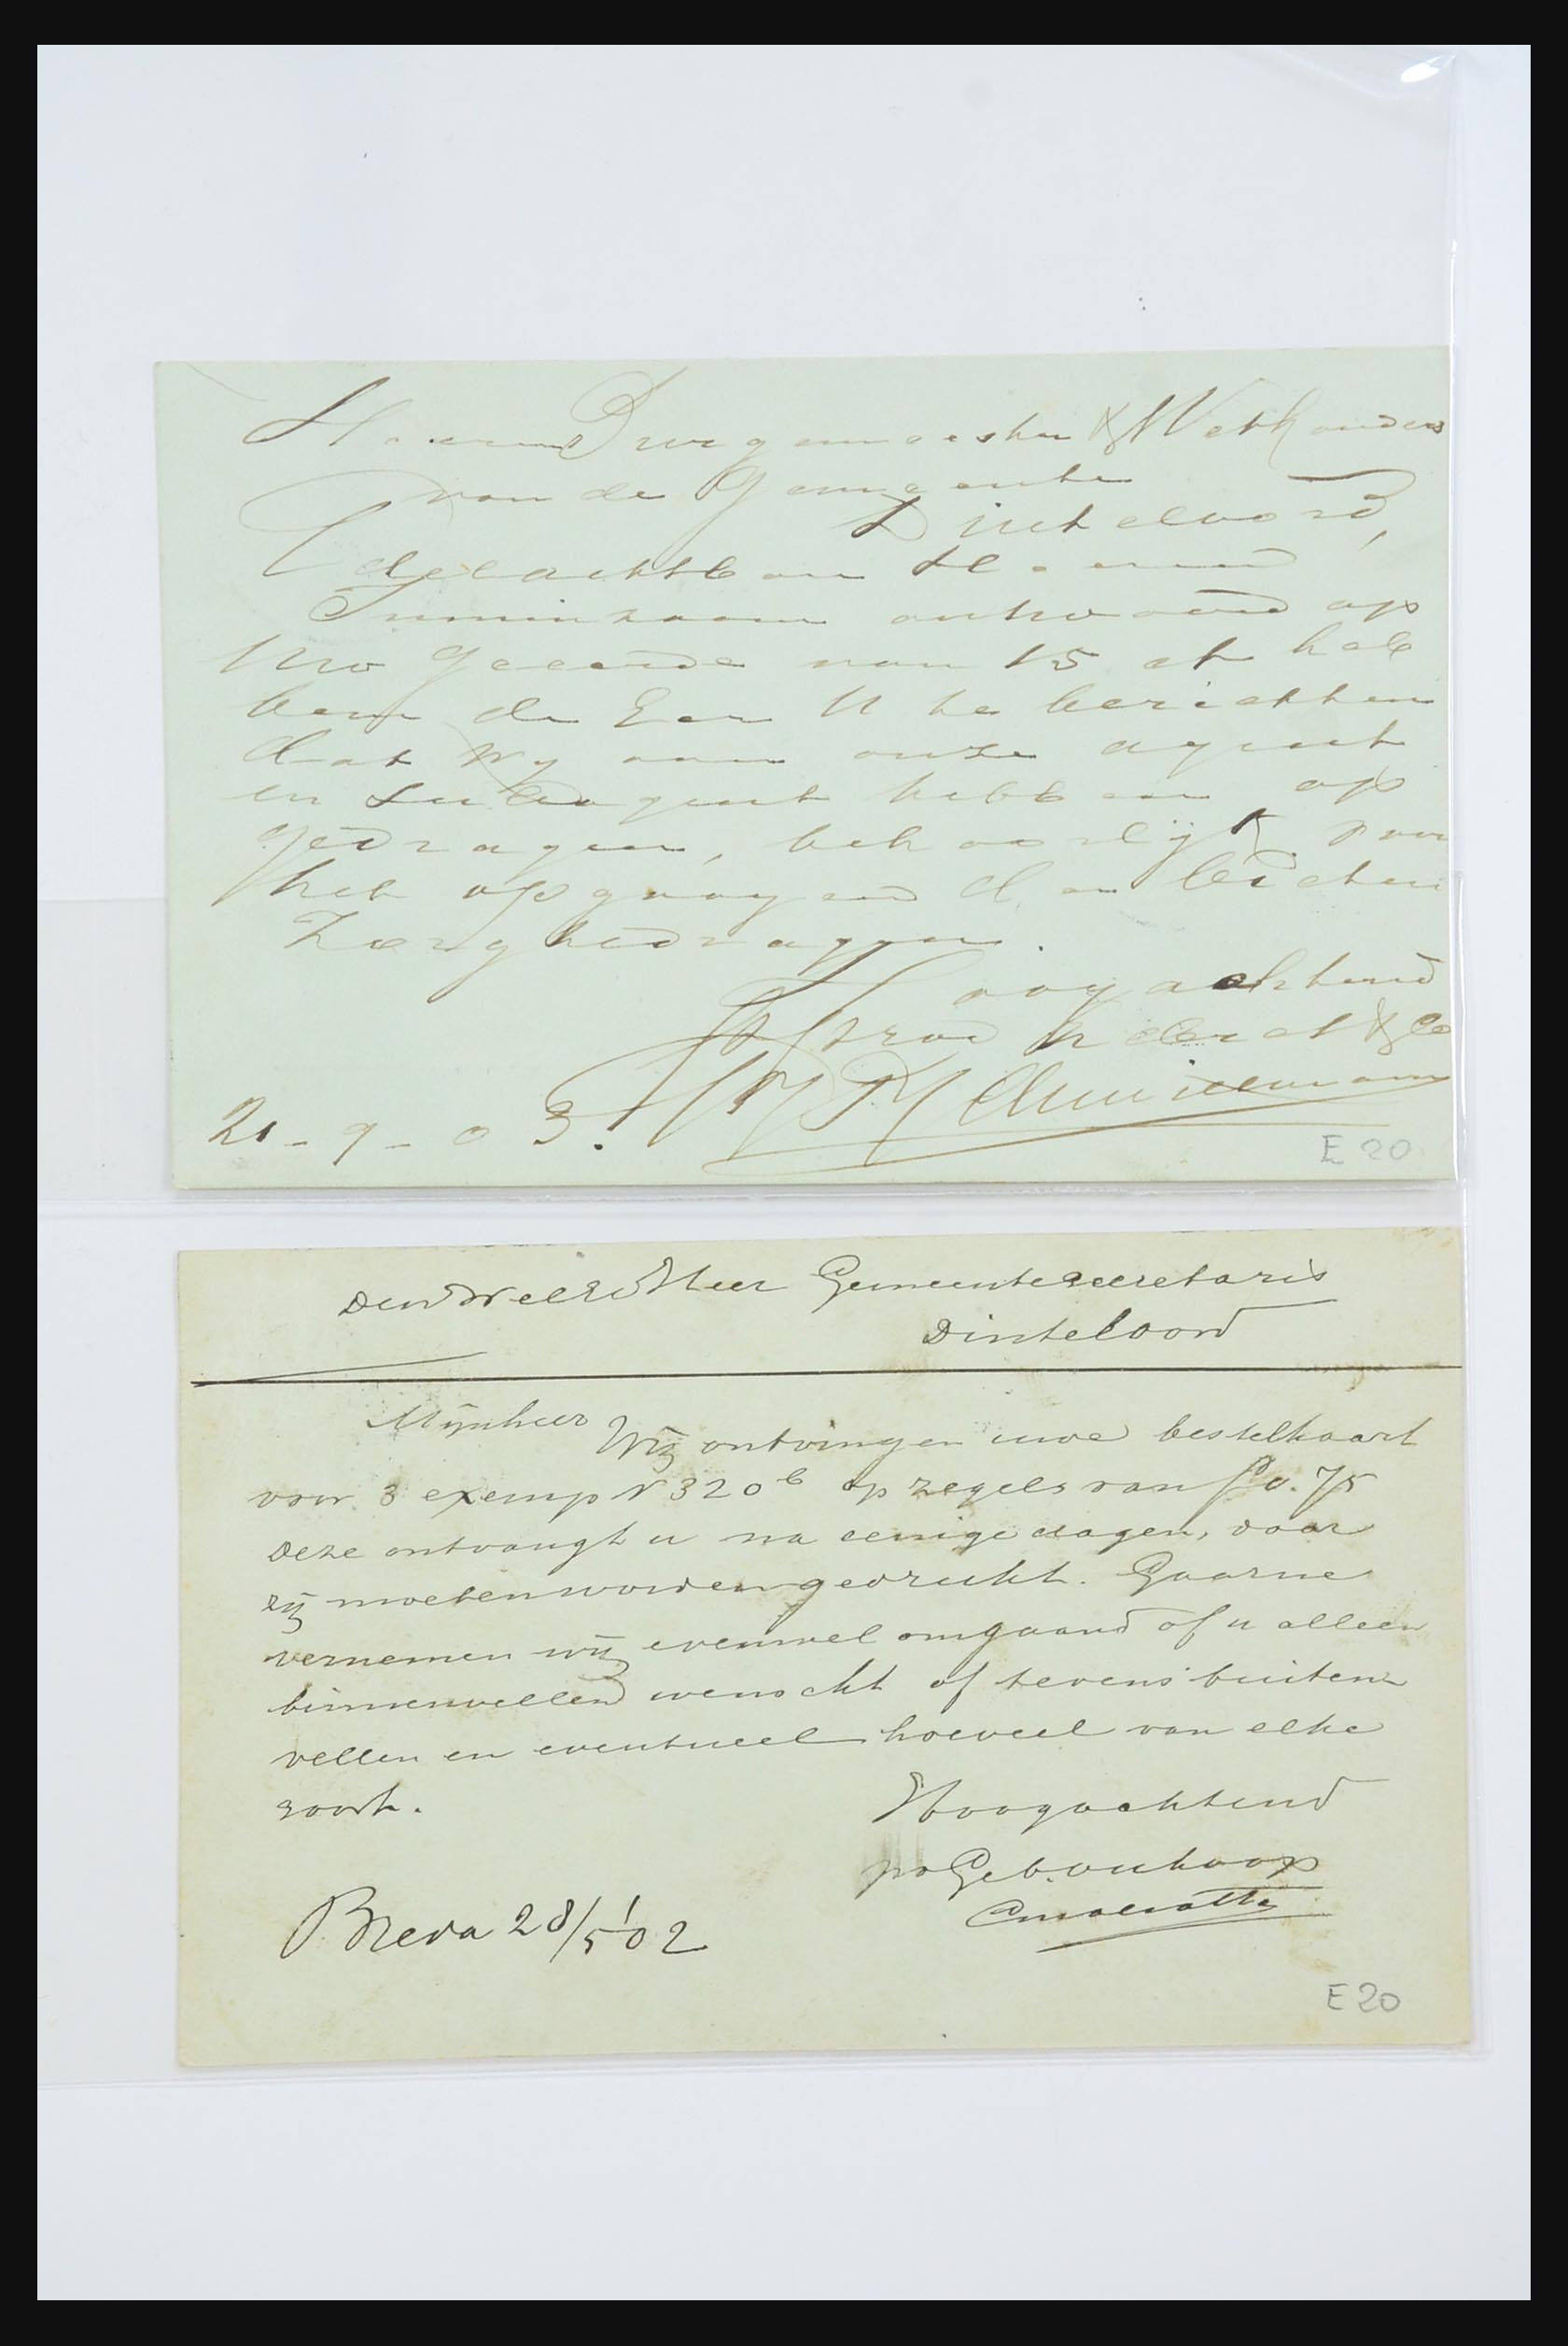 Heeren Burgemeester & Wethouders
van de Gemeente
Dinteloord,
Edelachtbare Heeren
Inminzaam antwoord op
Uw geeerde van 15 dr heb
ben de Eer U te berichten
dat Wy aan onze agent
en Subagent hebben op
gedragen, behoorlijk voor
het opgraven der
Zorg te dragen.
Hoogachtend
& Co
21-9-03.
E 20
Den WelEd Heer Gemeentesecretaris
Dinteloord
Mijnheer Wij ontvingen uwe bestelkaart
voor 3 exemp N 320b op zegels van f 0.75
Deze ontvangt u na eenige dagen, daar
zij moeten worden gedrukt. Gaarne
vernemen wij evenwel omgaand of u alleen
binnenvellen wenscht of tevens buiten
vellen en eventueel hoeveel van elke
soort.
Hoogachtend
po Geb. 
Breda 28/5 '02
E 20